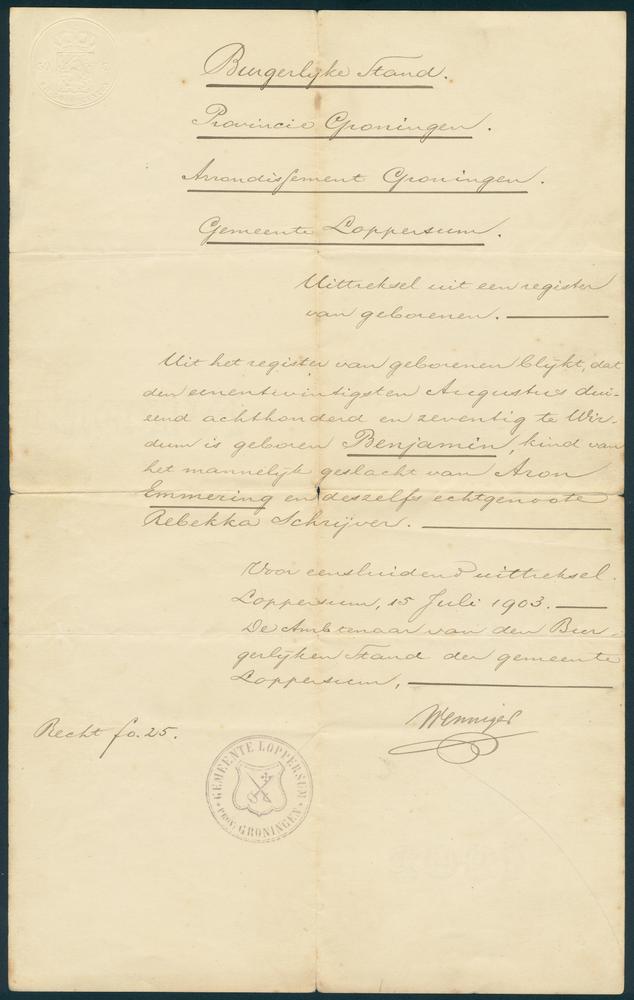 Burgerlyke Stand.
Provincie Groningen.
Arrondissement Groningen.
Gemeente Loppersum.
Uittreksel uit een register
van geborenen.
Uit het register van geborenen blykt, dat
den eenentwintigsten Augustus dui-
zend achthonderd en zeventig te Wir-
dum is geboren Benjamin, kind van
het mannelyk geslacht van Aron
Emmering en deszelfs echtgenoote
Rebekka Schrijver.
Voor eensluidend uittreksel.
Loppersum, 15 Juli 1903.
De Ambtenaar van den Bur-
gerlyken Stand der gemeente
Loppersum,
Recht fo. 25.
GEMEENTE LOPPERSUM
PROV. GRONINGEN